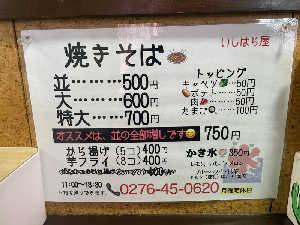 いしはち屋
焼きそば
並………500円
大………600円
特大……700円
トッピング
キャベツ 50円
ポテト……50円
肉 50円
たまご 100円
オススメは、並の全部増しです 750円
から揚げ(5コ)400円
芋フライ(8コ)400円
かき氷 350円
0276-45-0620
月曜定休日